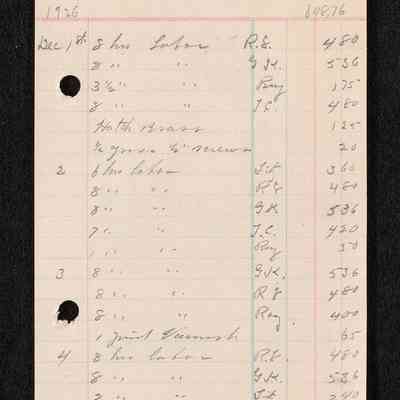 1926 108.76
Dec 1st 8 hrs Labor R.E. 480
8 " " G.K. 536
3 ½ " " Ray 175
8 " " T.C. 480
Hatch Brass 125
½ gross ½" screws 20
2 6 hrs labor 360
8 " " R.E. 480
8 " " G.K. 536
7 " " T.C. 420
1 " " Ray 50
3 8 " " G.K. 536
8 " " R.E. 480
8 " " Ray 400
1 pint Varnish 65
4 8 hrs labor R.E. 480
8 " " G.K. 536
" " 240